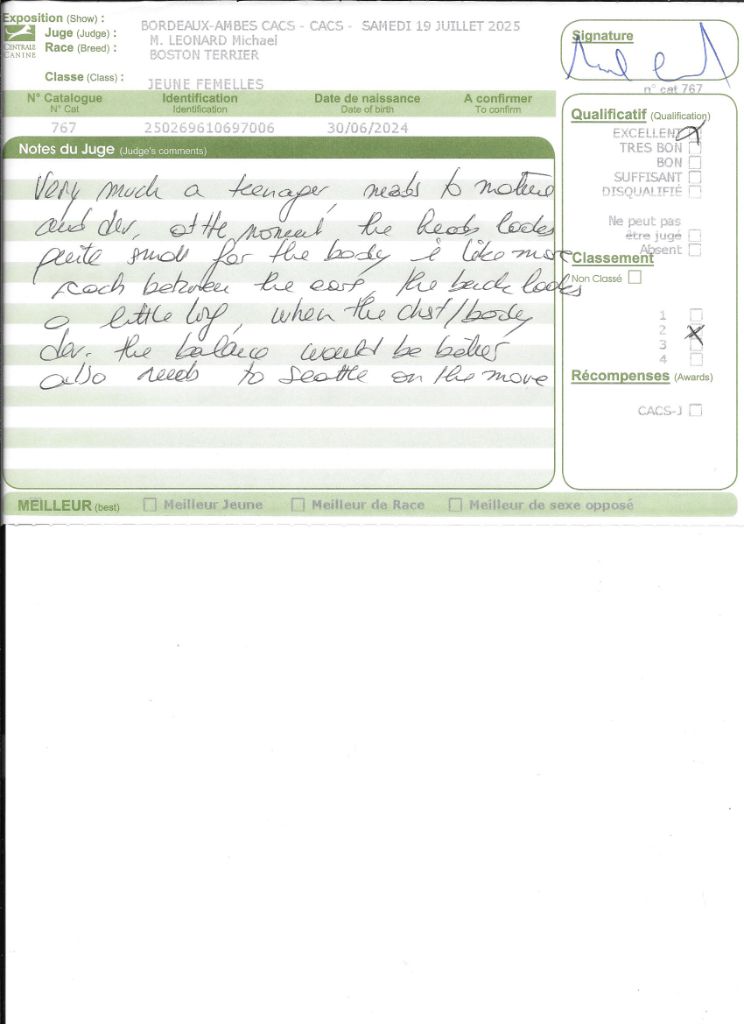 Exposition (Show) : BORDEAUX-AMBES CACS - CACS - SAMEDI 19 JUILLET 2025
Juge (Judge) : M. LEONARD Michael
Race (Breed) : BOSTON TERRIER
CENTRALE CANINE
Classe (Class) : JEUNE FEMELLES
N° Catalogue Identification Date de naissance A confirmer
N° Cat Identification Date of birth To confirm
767 250269610697006 30/06/2024
Notes du Juge (Judge's comments)
Very much a teenager, needs to mature
and dev, at the moment the head looks
quite small for the body i like more
between the ears, the back looks
a little long, when the chest/body
dev. the balance would be better
also needs to seattle on the move
Signature
n° cat 767
Qualificatif (Qualification)
EXCELLENT
TRES BON
BON
SUFFISANT
DISQUALIFIÉ
Ne peut pas
être jugé
Absent
Classement
Non Classé
1
2
3
4
Récompenses (Awards)
CACS-J
MEILLEUR (best) Meilleur Jeune Meilleur de Race Meilleur de sexe opposé